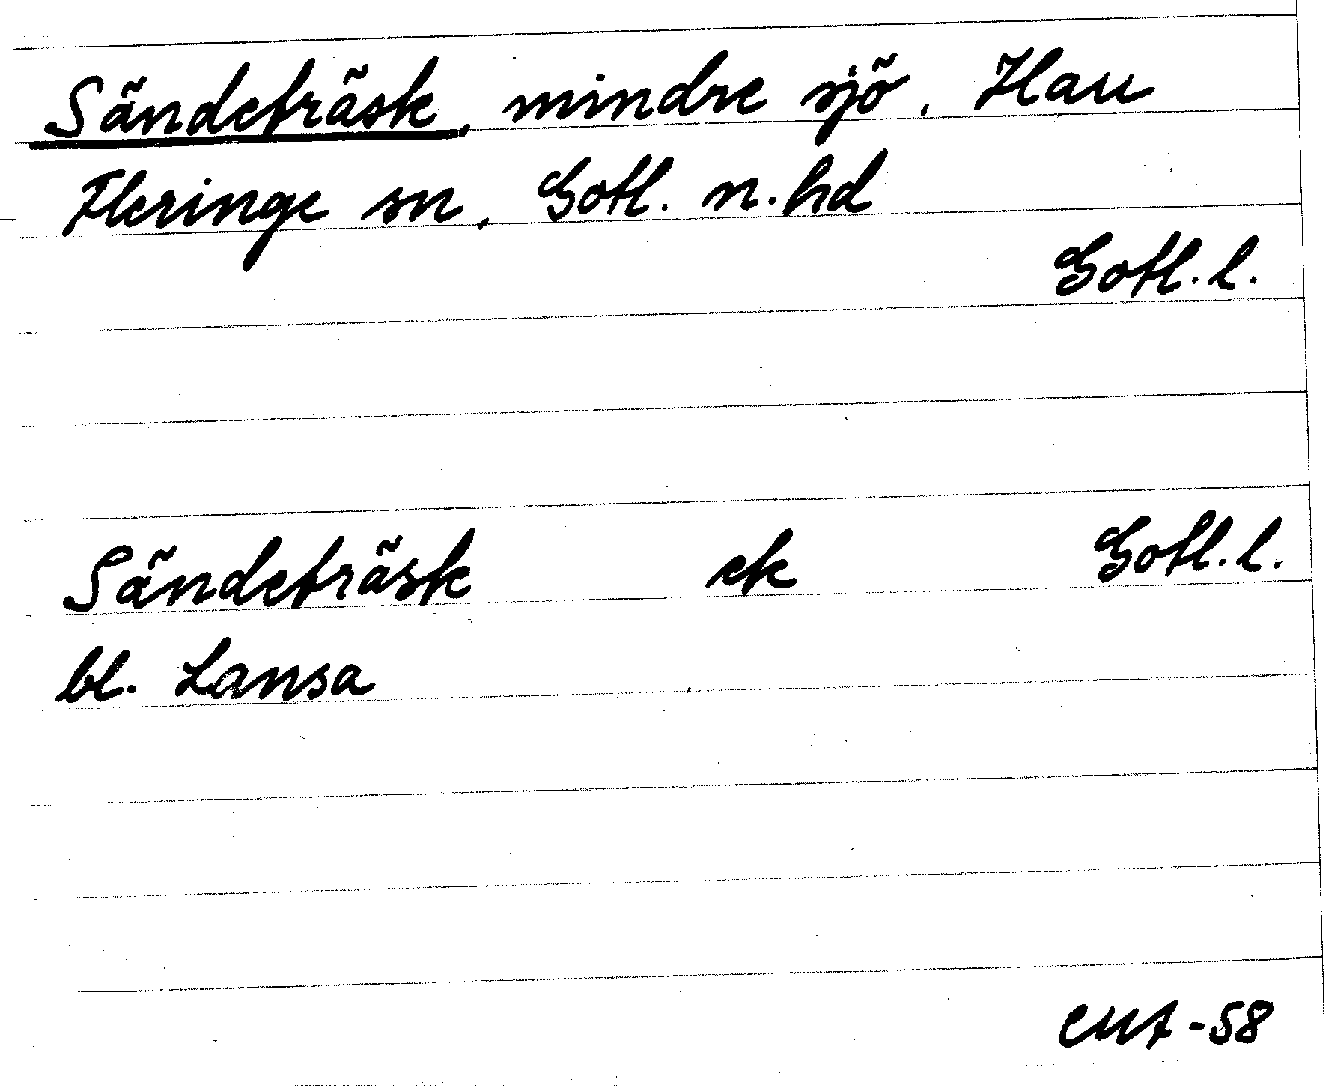 Sändeträsk, mindre sjö, Hau
Fleringe sn, Gotl. n. hd
Gotl. l.
Sändeträsk ek Gotl. l.
bl. Lansa
-58